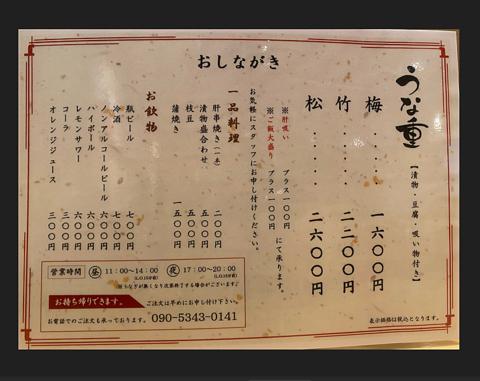 おしながき
うな重
【漬物・豆腐・吸い物付き】
梅・・・・・一六〇〇円
竹・・・・・二二〇〇円
松・・・・・二六〇〇円
※肝吸い プラス一〇〇円
※ご飯大盛り プラス一〇〇円
にて承ります。
お気軽にスタッフにお申し付けください。
一品料理
肝串焼き(一本) 二〇〇円
漬物盛合わせ 五〇〇円
枝豆 五〇〇円
蒲焼き 一五〇〇円
お飲物
瓶ビール 七〇〇円
冷酒 七〇〇円
ノンアルコールビール 六〇〇円
ハイボール 六〇〇円
レモンサワー 六〇〇円
コーラ 三〇〇円
オレンジジュース 三〇〇円
営業時間 昼 11：00～14：00 夜 17：00～20：00
(L.O.15分前) (L.O.15分前)
お持ち帰りできます。 ご注文は早めにお申し付け下さい。
お電話でのご注文も承っております。 090-5343-0141
表示価格は税込となります。